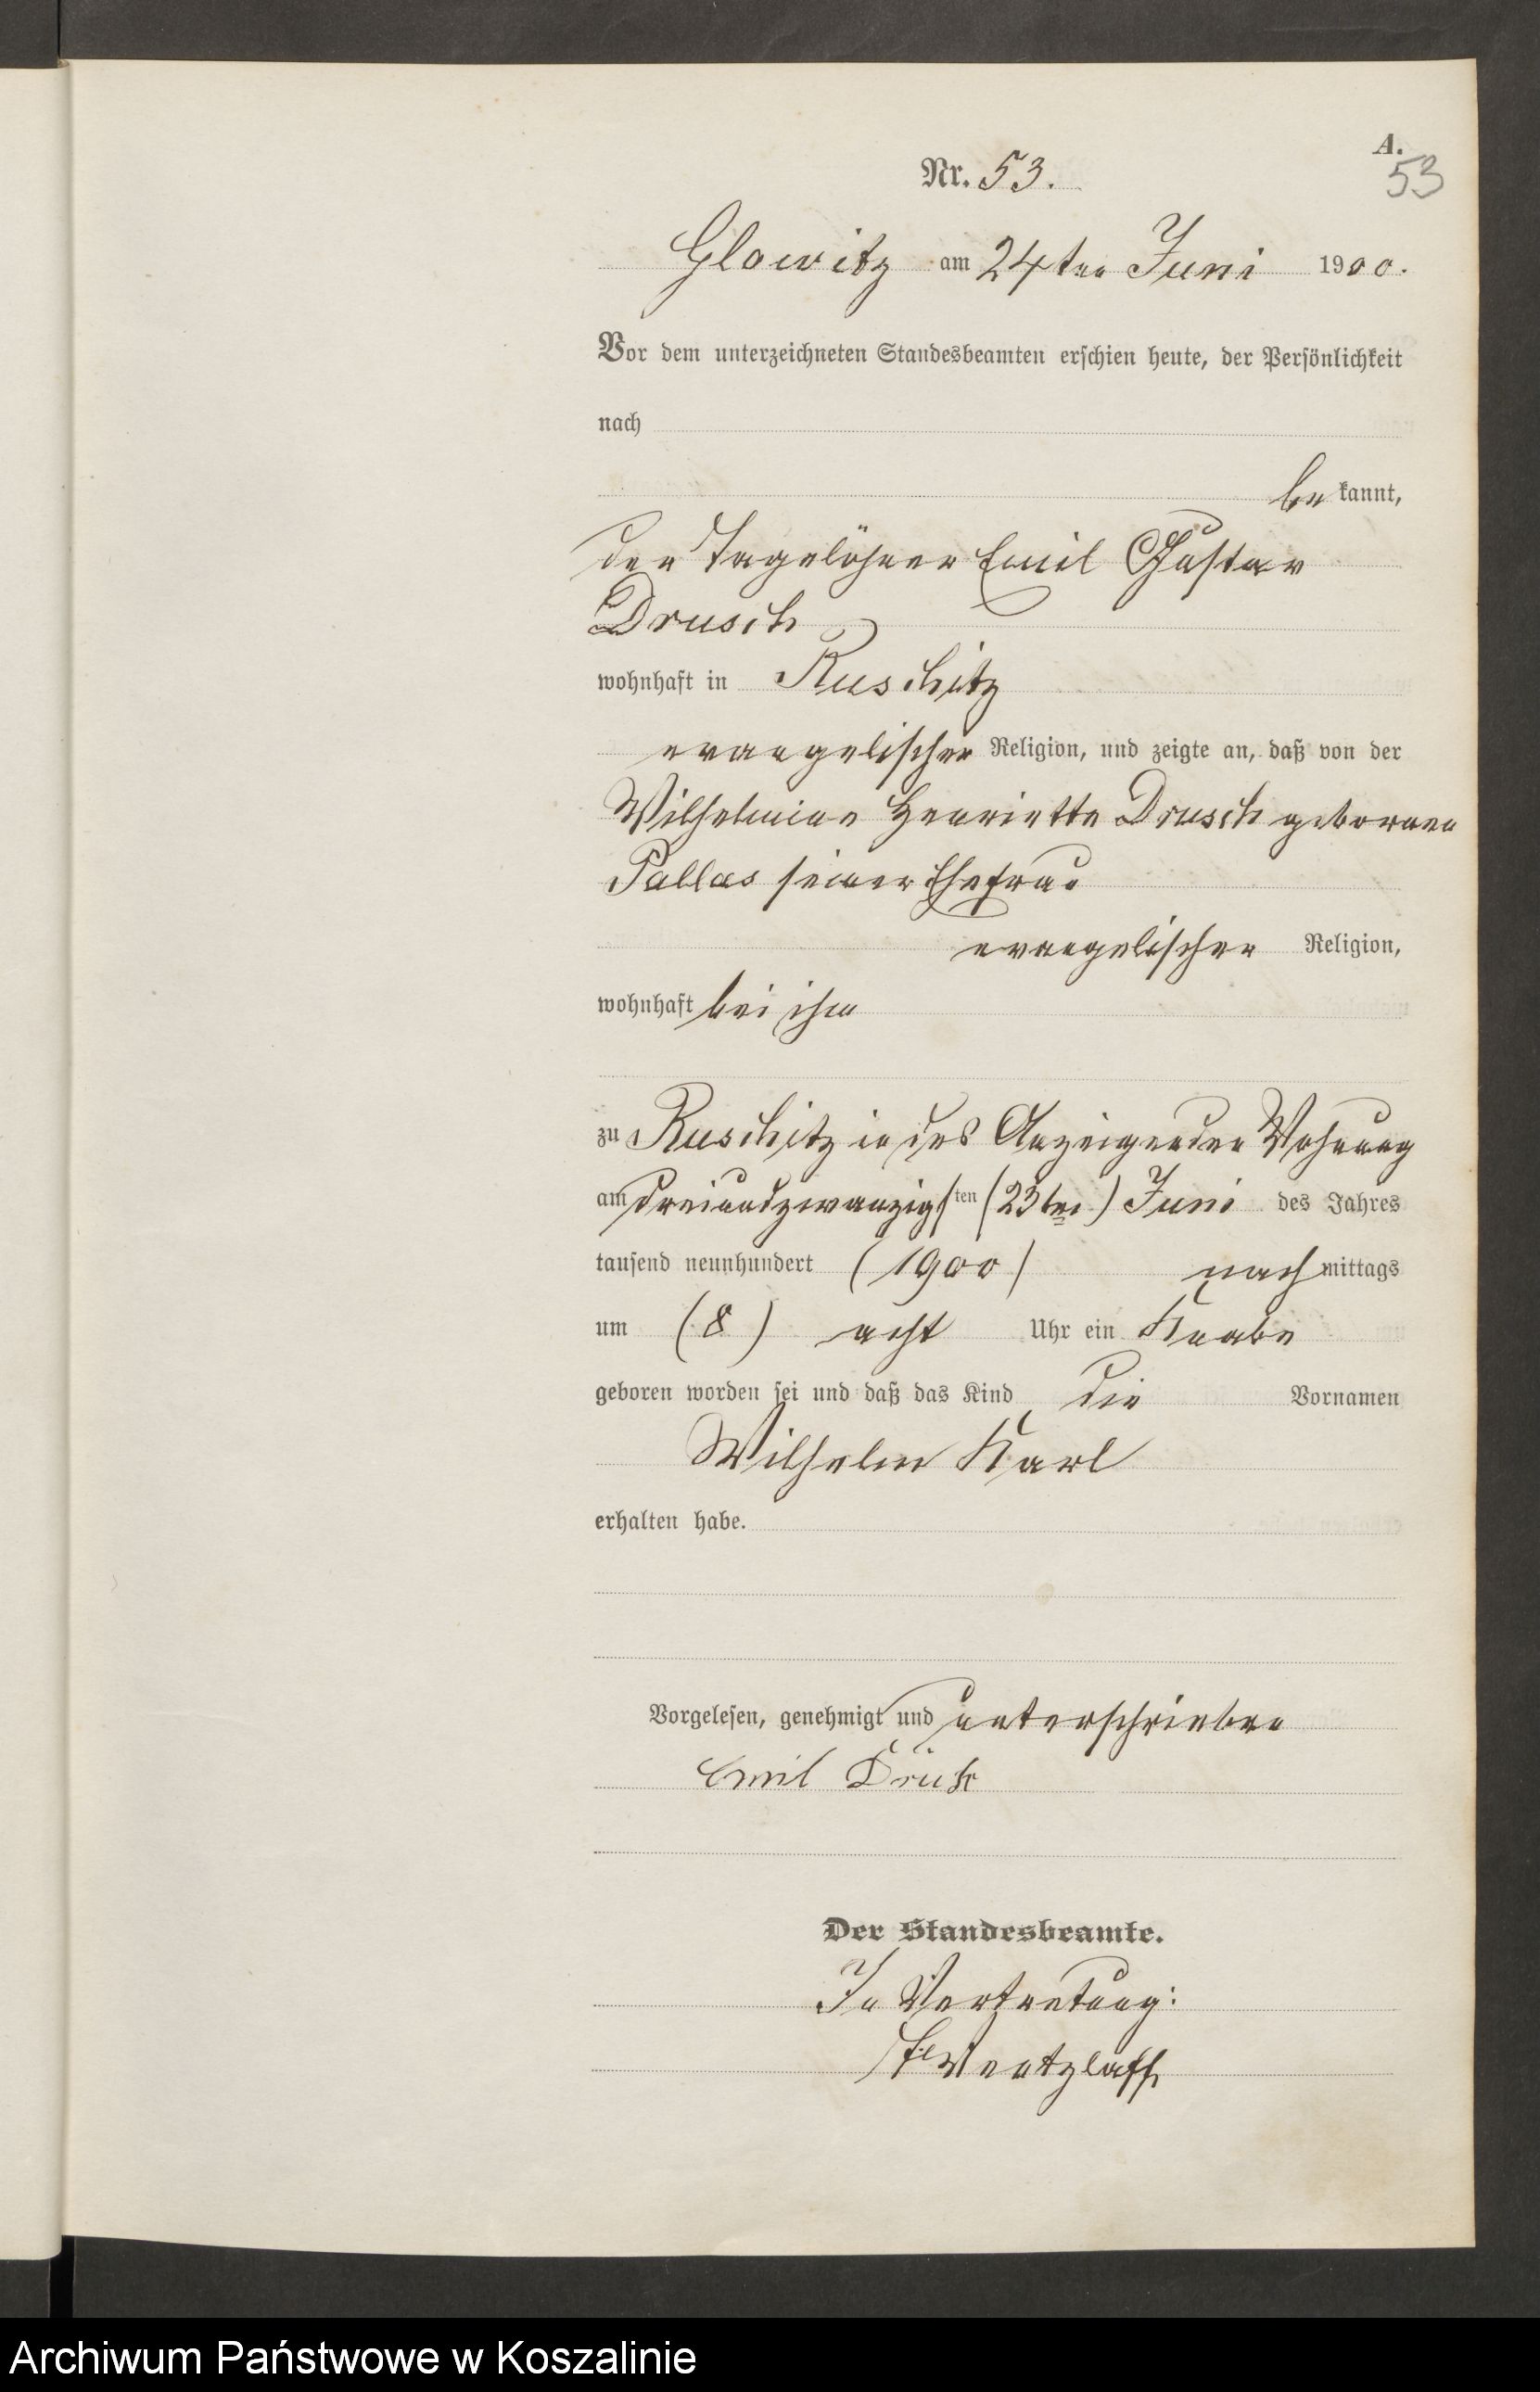 A.
Nr. 53.
53
Glowitz am 24ten Juni 1900.
Vor dem unterzeichneten Standesbeamten erschien heute, der Persönlichkeit
nach
be kannt,
der Tagelöhner Emil Gustav
Drusch
wohnhaft in Ruschitz
evangelischer Religion, und zeigte an, daß von der
Wilhelmine Henriette Drusch geborenen
Pallas seiner Ehefrau
evangelischer Religion,
wohnhaft bei ihm
zu Ruschitz in des Anzeigenden Wohnung
am dreiundzwanzigsten (23ten) Juni des Jahres
tausend neunhundert (1900) nachmittags
um (8) acht Uhr ein Knabe
geboren worden sei und daß das Kind die Vornamen
Wilhelm Karl
erhalten habe.
Vorgelesen, genehmigt und unterschrieben
Emil
Der Standesbeamte.
In Vertretung:
Wentzlaff
Archiwum Państwowe w Koszalinie